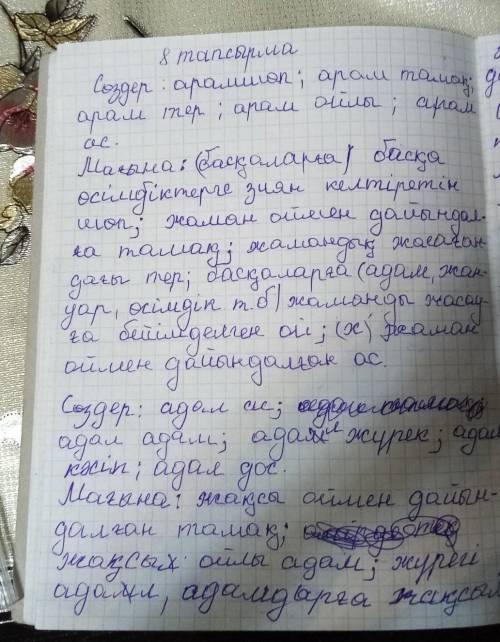 8 тапсырма
Сөздер: арамшөп; арам тамақ;
арам тер; арам ойлы; арам
ас.
Мағына: (басқаларға) басқа
өсімдіктерге зиян келтіретін
шөп; жаман оймен дайындал-
ға тамақ; жамандық жасаған
дағы тер; басқаларға (адам, жан-
уар, өсімдік т.б) жаманды жасау
ға бейімделген ой; (х) жаман
оймен дайындалған ас.
Сөздер: адал ас;
адал адам; адал жүрек; адал
кәсіп; адал дос.
Мағына: жақсы оймен дайын-
далған тамақ;
жақсы ойлы адам; жүрегі
адал, адамдарға жақсы